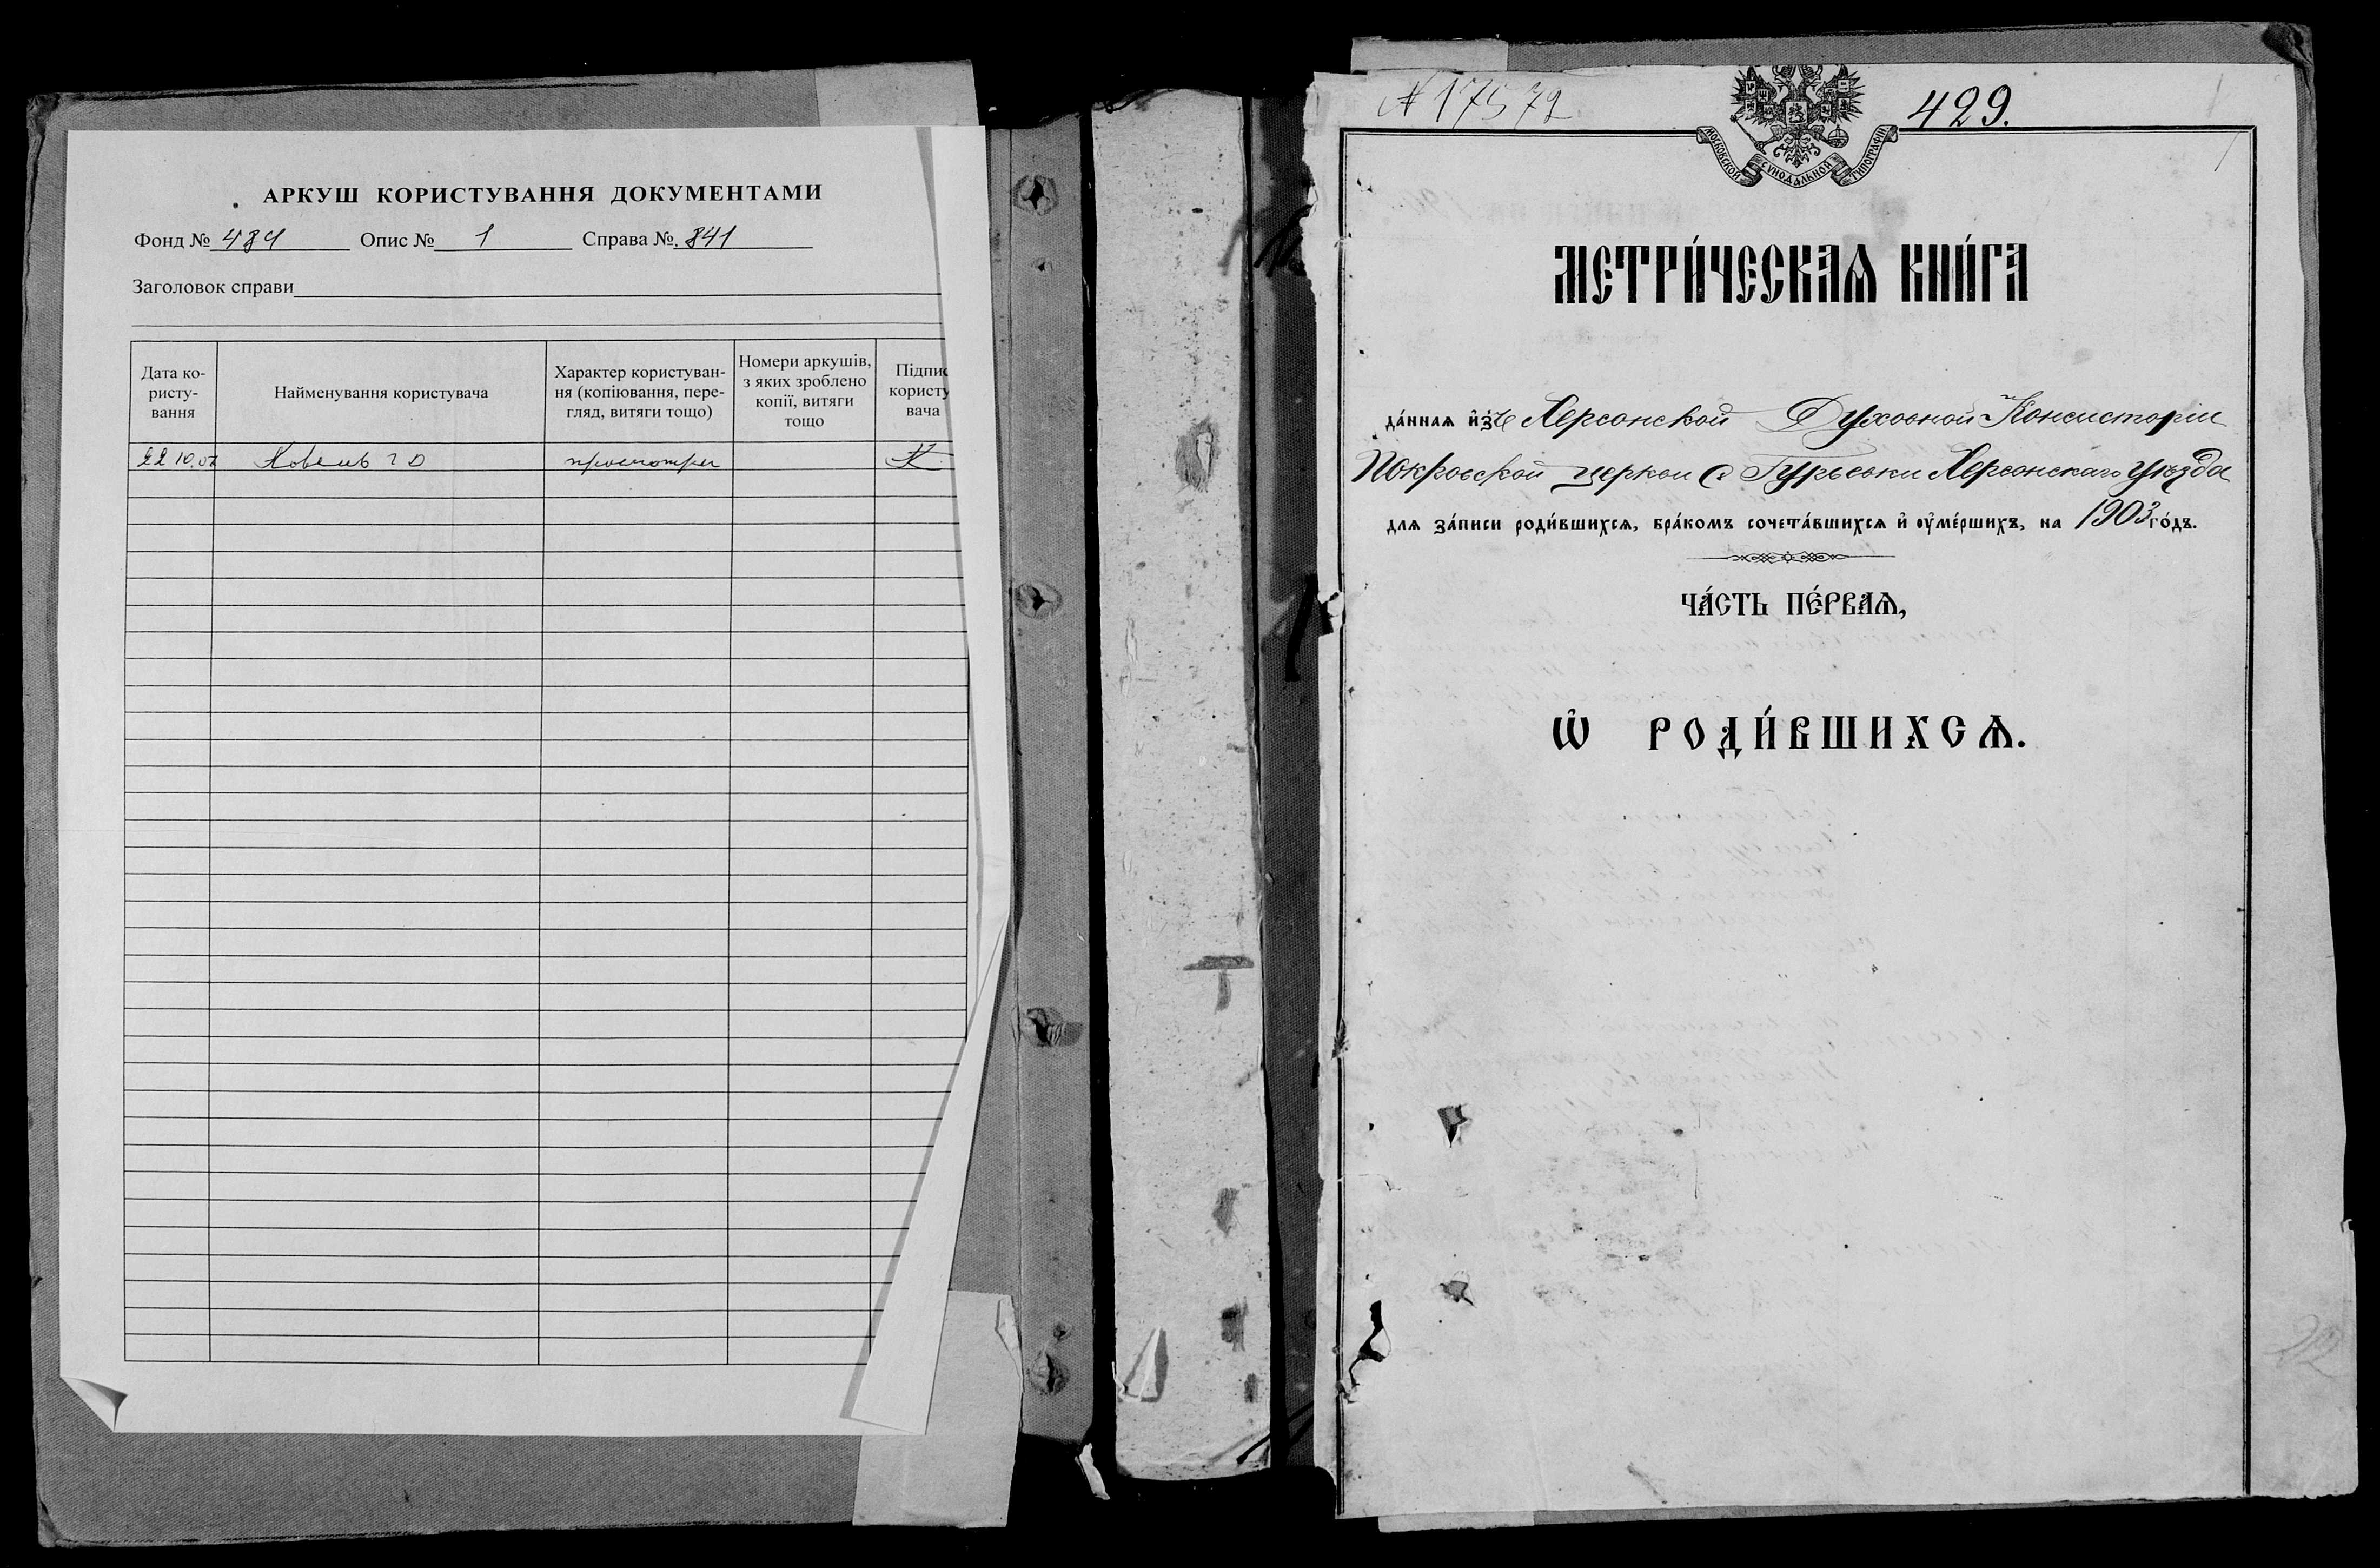 АРКУШ КОРИСТУВАННЯ ДОКУМЕНТАМИ
Фонд № 484 Опис № 1 Справа № 841
Заголовок справи
Дата ко-
ристу-
вання
Найменування користувача
Характер користуван-
ня (копіювання, пере-
гляд, витяги тощо)
Номери аркушів,
з яких зроблено
копії, витяги
тощо
Підпис
користу
вача
22 10.07
N 17572
429.
МОСКОВСКОЙ СѴНОДАЛЬНОЙ ТИПОГРАФІИ
МЕТРИ́ЧЕСКАѦ КНИ́ГА
да́ннаѧ и҆зъ Херсонской Духовной Консисторіи
Покровской церкви с. Гурьевки Херсонскаго уѣзда
для за́писи роди́вшихсѧ, бра́комъ сочета́вшихсѧ и҆ оу҆ме́ршихъ, на 1903 го́дъ.
ЧА́СТЬ ПЕ́РВАѦ,
Ѡ҆ РОДИ́ВШИХСѦ.